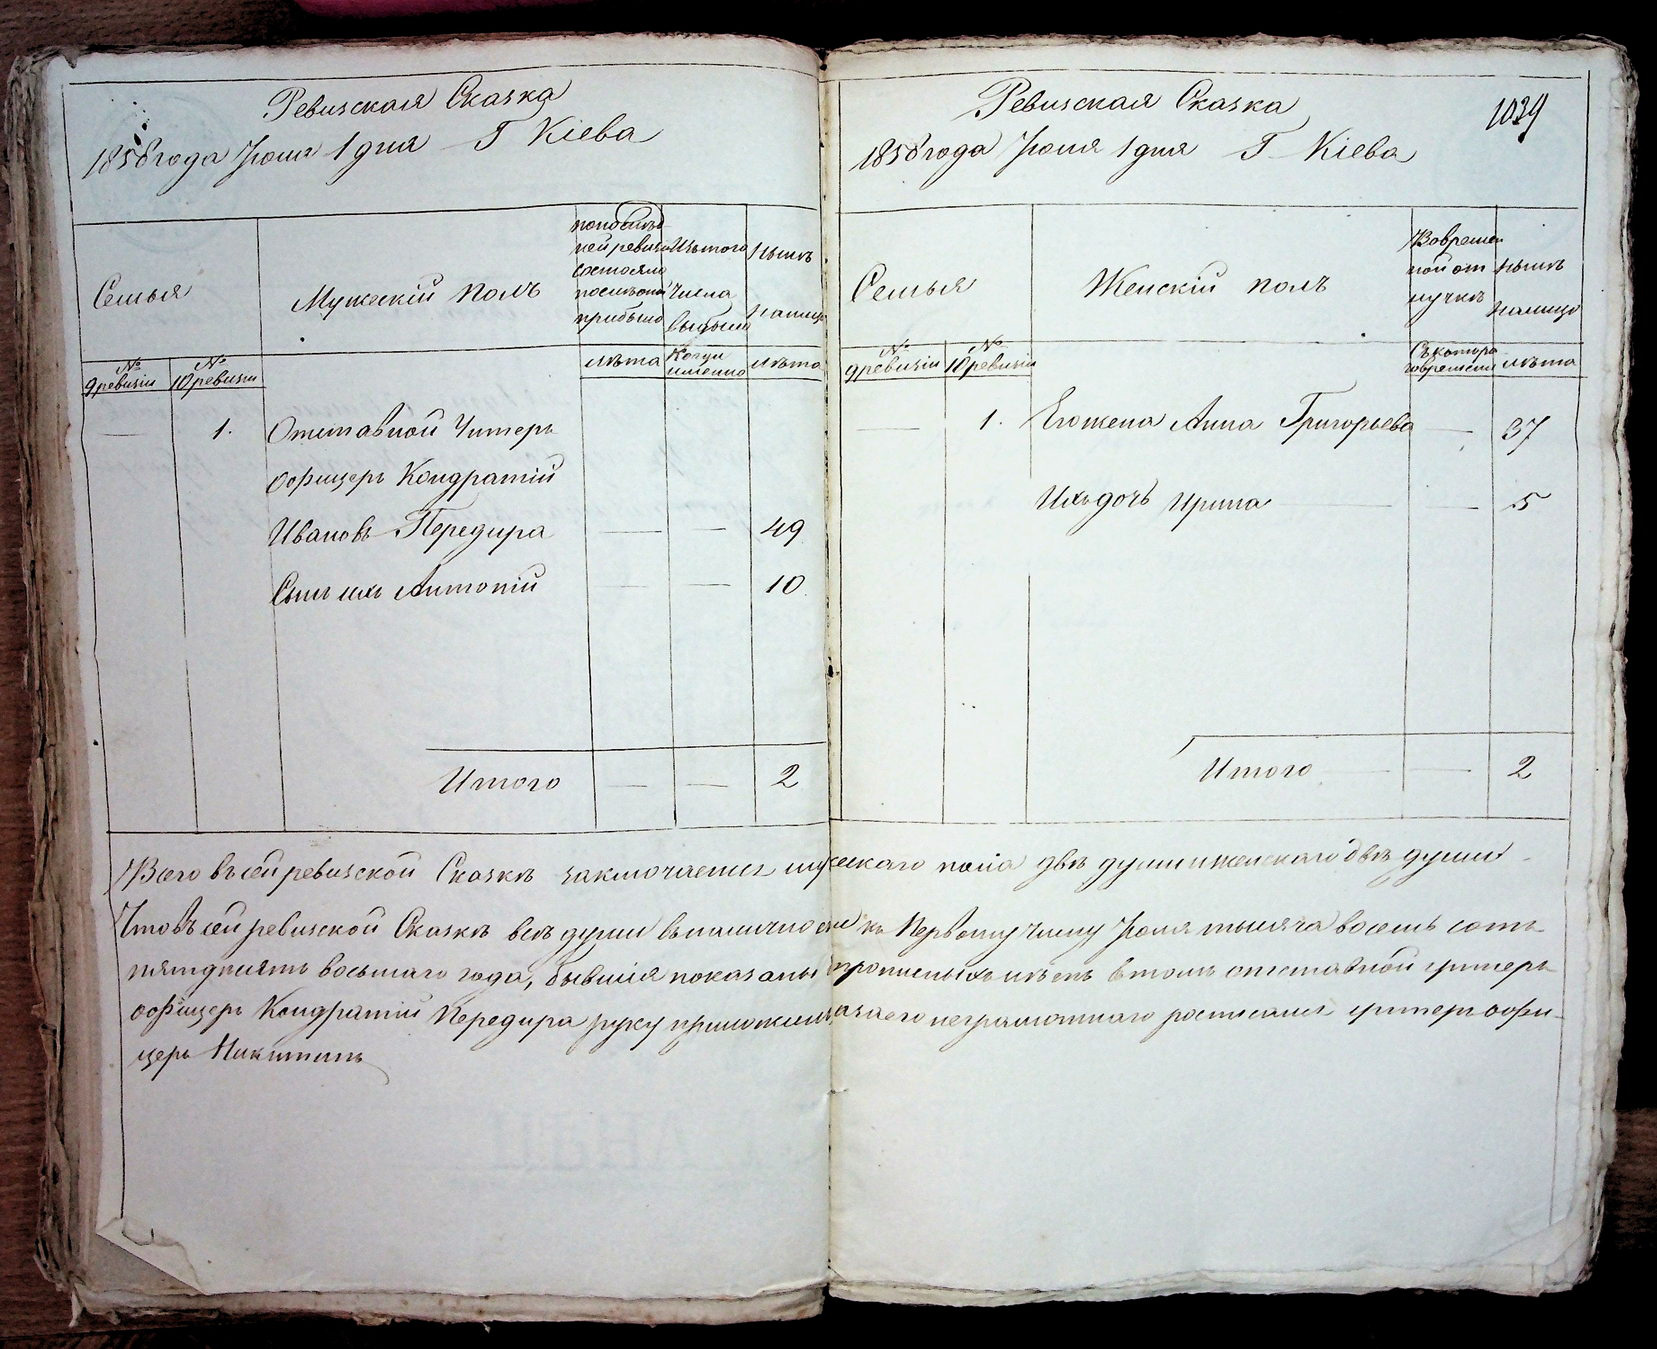 Ревизская Сказка
1858 года Июня 1 дня Г Кіева
Семья
Мужескій полъ
по послѣд
ней ревизіи
состояло
и послѣ оной
прибыло
Изъ того
числа
выбыло
Нынѣ
налицо
№ 9 ревизіи
№ 10 ревизіи
лѣта
Когда именно
лѣта
— 1. Отставной Унтеръ
офицеръ Кондратій
Ивановъ Передира — — 49
Сынъ ихъ Антоній — — 10
Итого — — 2
Ревизская Сказка
1858 года Июня 1 дня Г Кіева
1029
Семья
Женскій полъ
Во времен
ной от
лучкѣ
Нынѣ
налицо
№ 9 ревизіи
№ 10 ревизіи
Съ котора
го времени
лѣта
— 1. Егожена Анна Григорьева — 37
Ихъ дочь Ирина — — 5
Итого — — 2
Всего въ сей ревизской Сказкѣ заключается мужескаго пола двѣ души и женскаго двѣ души
Что въ сей ревизской Сказкѣ всѣ души въ наличности къ Первому числу Июня тысяча восемь сотъ
пятдесятъ восьмаго года, бывшія показаны прописныхъ нѣтъ в томъ отставной унтеръ
офицеръ Кондратій Передира руку приложилъ, а за его неграмотнаго росписался унтеръ офи-
церъ Никитинъ